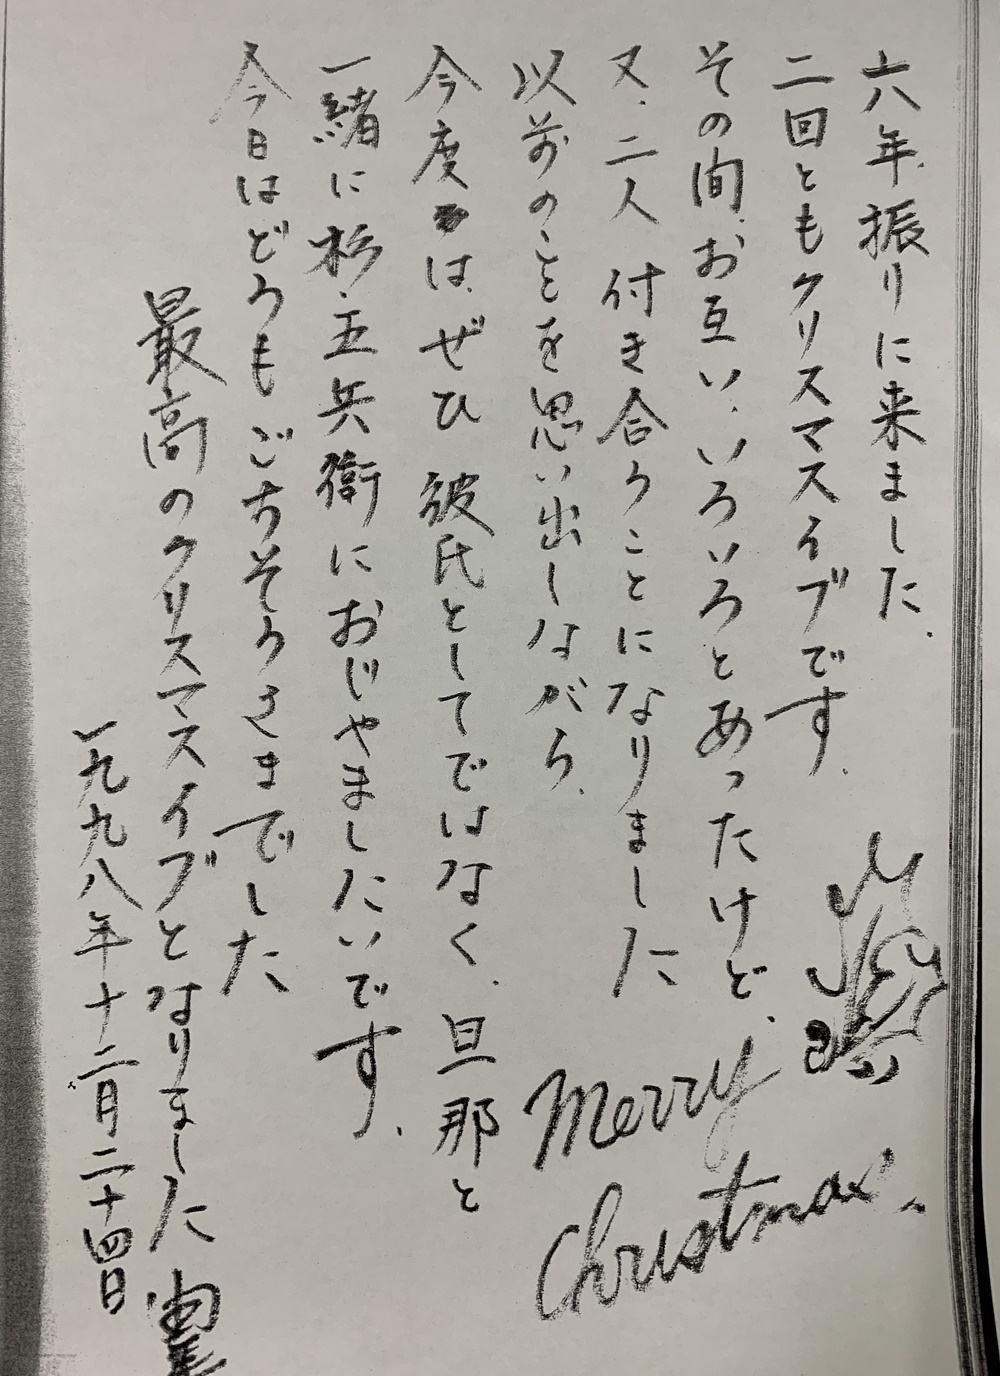 六年振りに来ました.
二回ともクリスマスイブです.
その間.お互い.いろいろとあったけど.
又.二人付き合うことになりました
以前のことを思い出しながら.
今度は.ぜひ彼氏としてではなく.旦那と
一緒に杉.五兵衛におじゃましたいです.
今日はどうもごちそうさまでした
最高のクリスマスイブとなりました
一九九八年十二月二十四日
Merry
Christmas